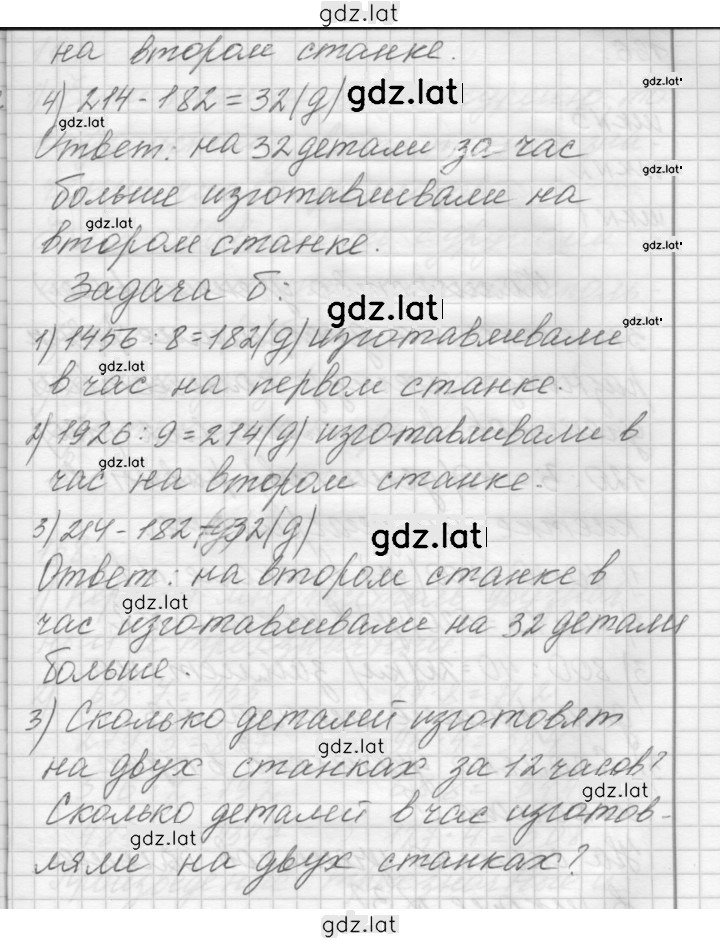 gdz.lat
на втором станке.
4) 214 - 182 = 32(д) gdz.lat
gdz.lat
gdz.lat
Ответ: на 32 детали за час
gdz.lat
больше изготавливали на
gdz.lat
втором станке.
gdz.lat
Задача б:
gdz.lat
gdz.lat
1) 1456 : 8 = 182(д) изготавливали
gdz.lat
в час на первом станке.
2) 1926 : 9 = 214(д) изготавливали в
gdz.lat
час на втором станке.
3) 214 - 182 = 32(д)
gdz.lat
Ответ: на втором станке в
gdz.lat
час изготавливали на 32 детали
больше.
3) Сколько деталей изготовят
gdz.lat
на двух станках за 12 часов?
gdz.lat
Сколько деталей в час изготов-
gdz.lat
ляли на двух станках?
gdz.lat